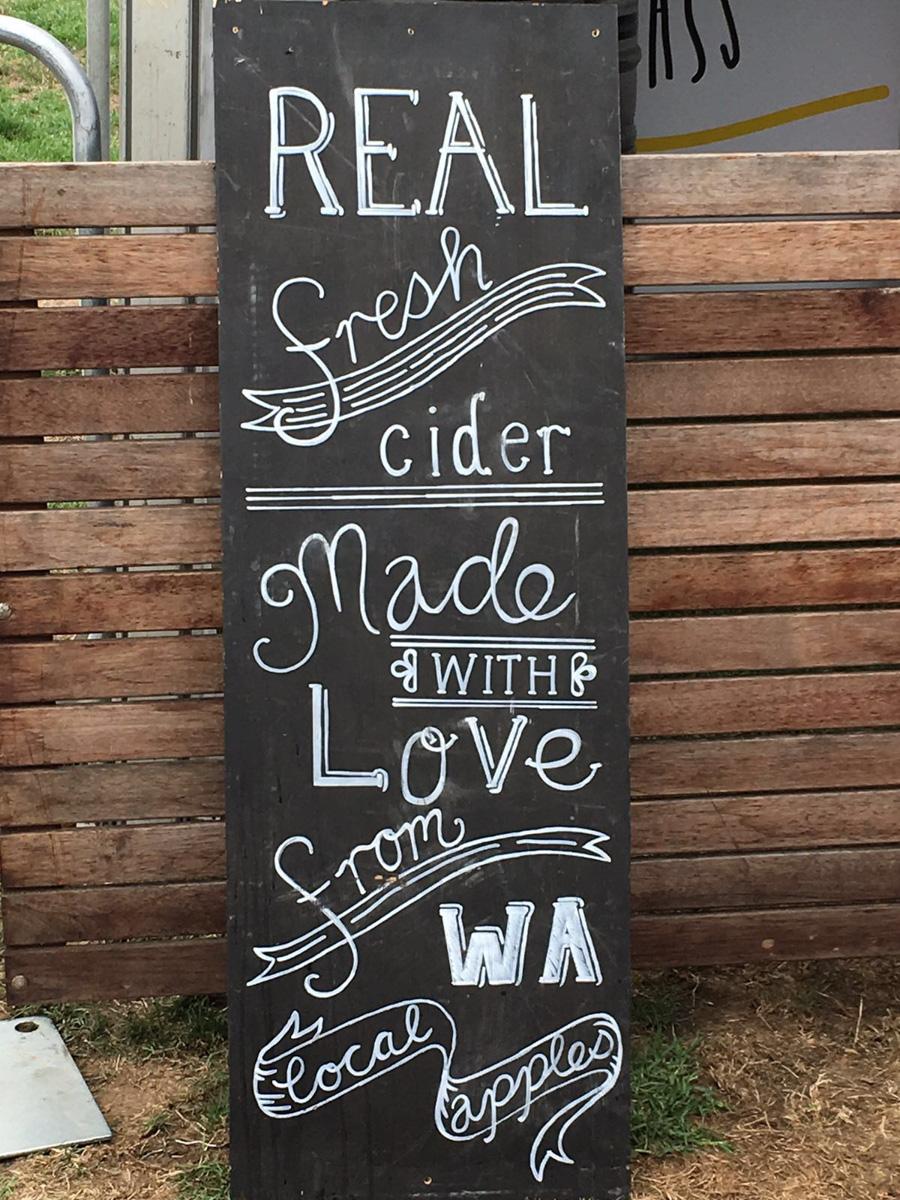 ASS
REAL
fresh
cider
Made
WITH
Love
from
WA
local
apples